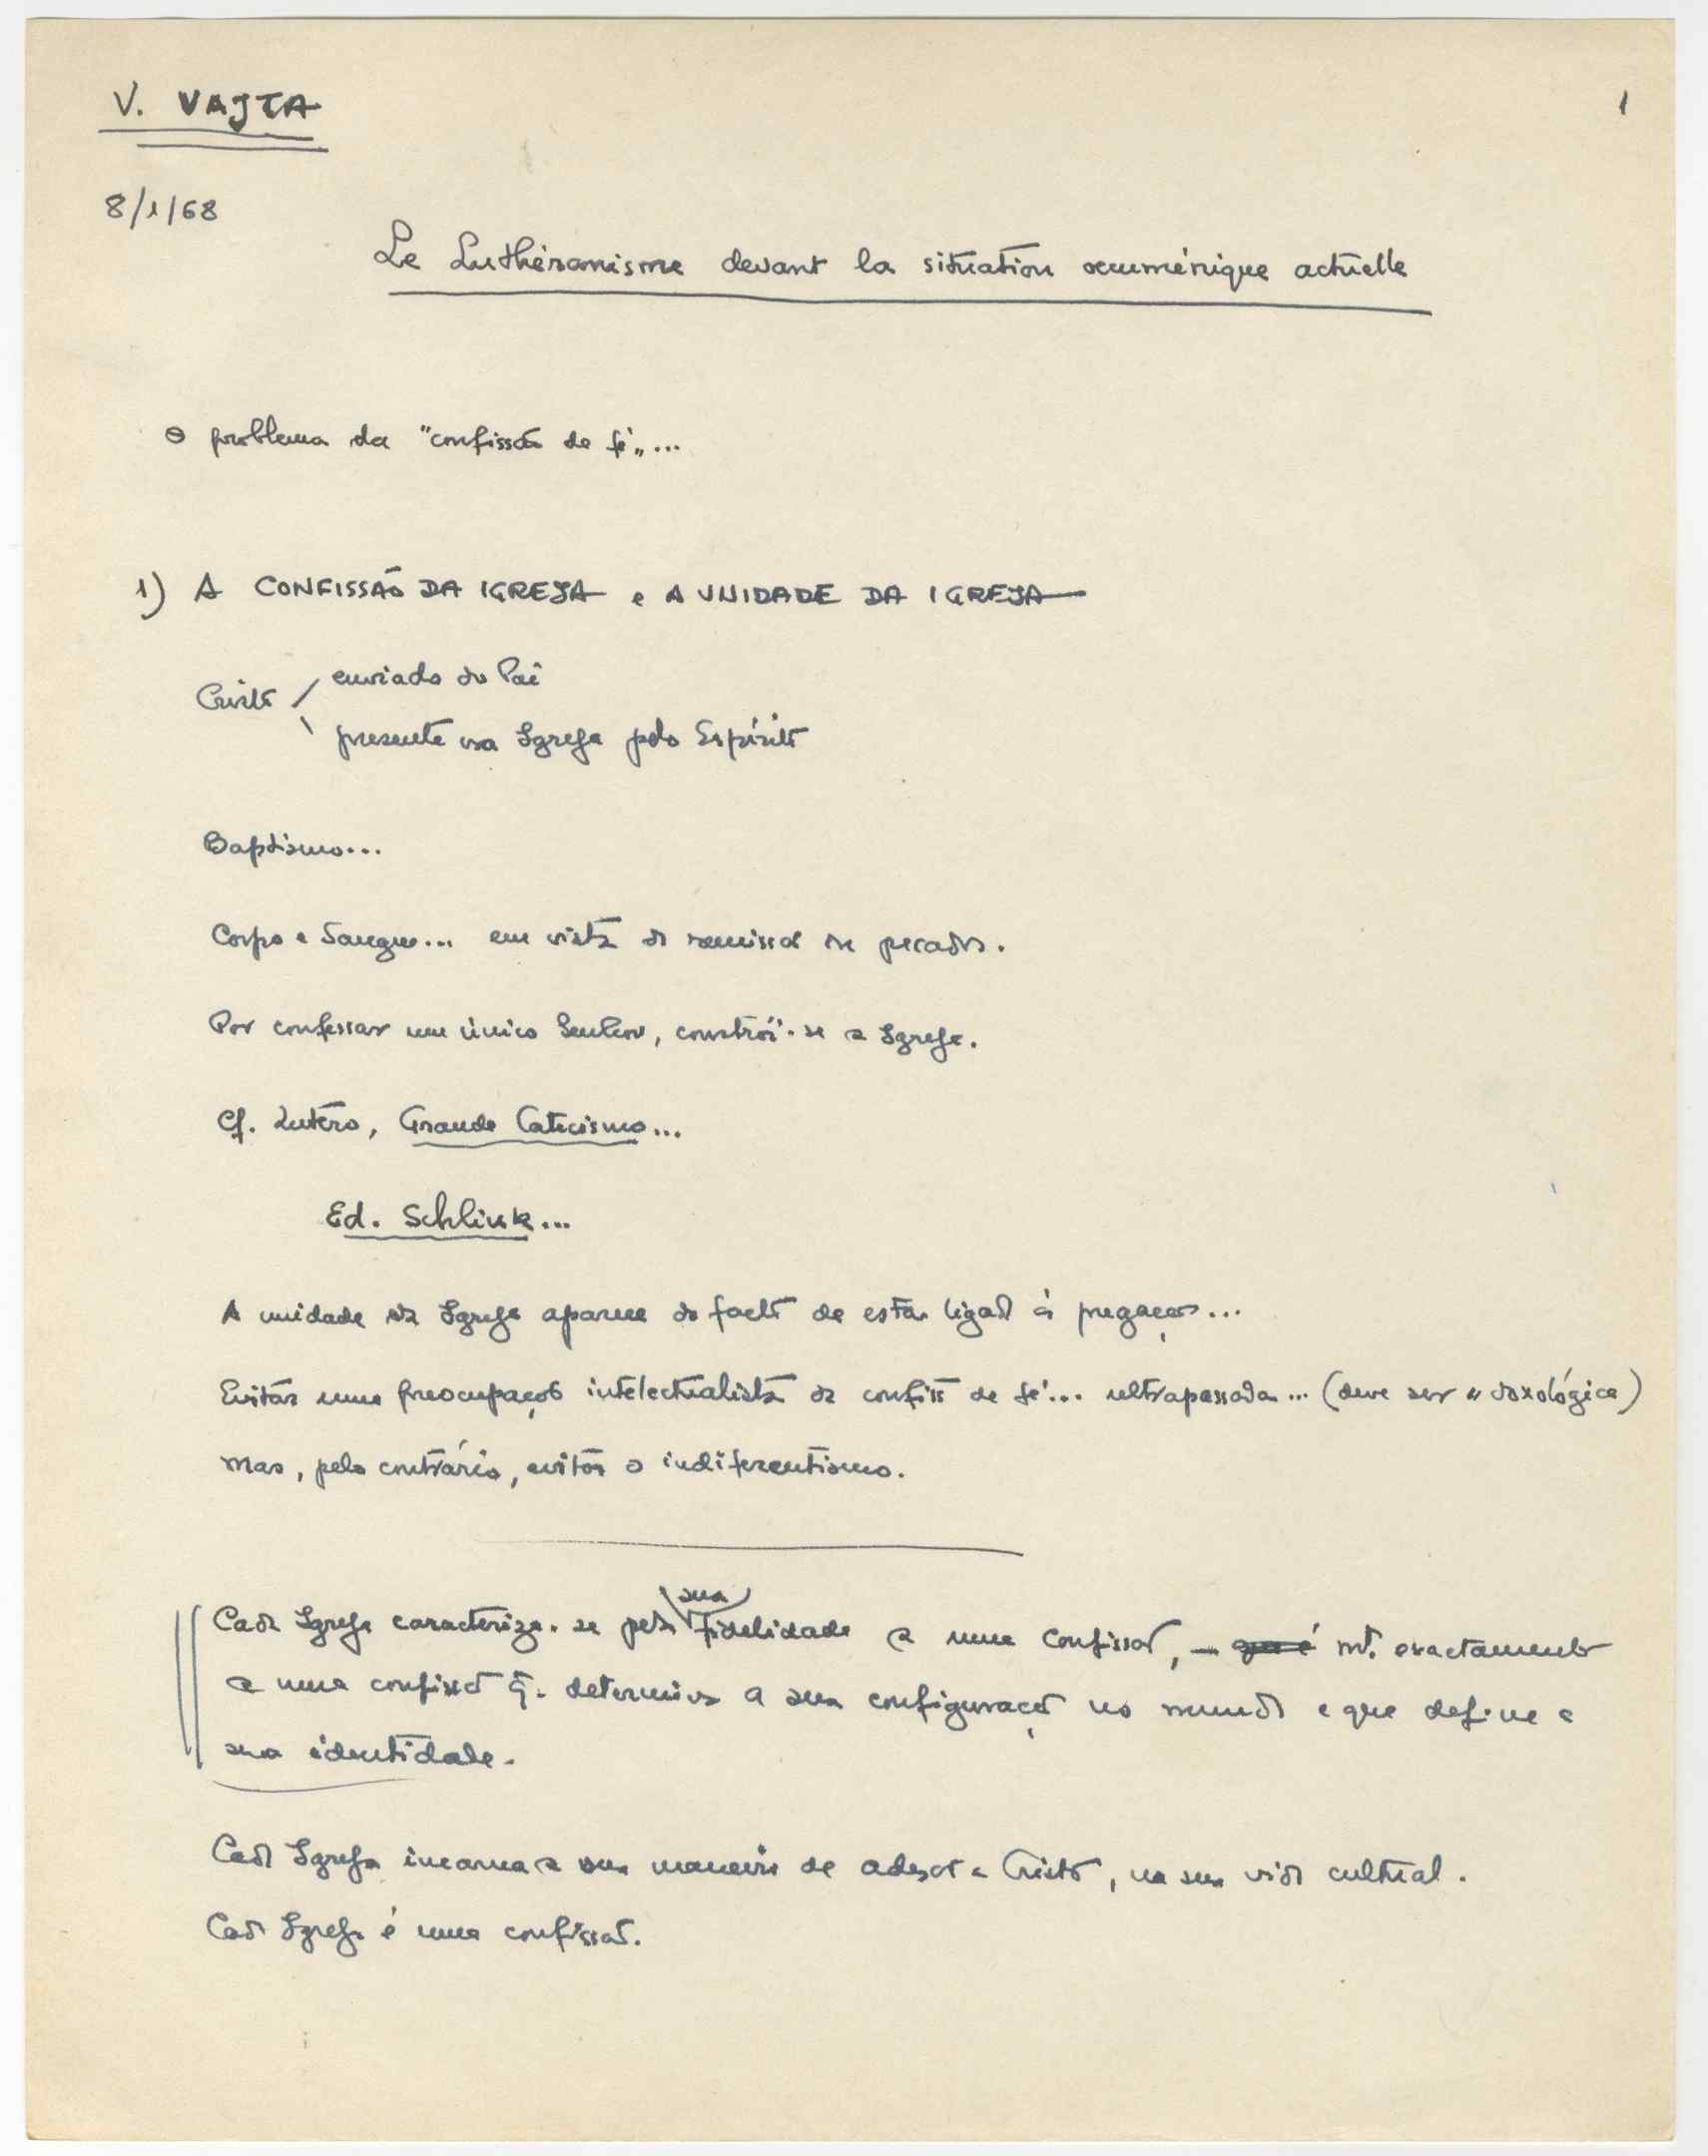 V. VAJTA
1
8/1/68
Le Luthéranisme devant la situation œcuménique actuelle
O problema da "confissão de fé"...
1) A CONFISSÃO DA IGREJA e A UNIDADE DA IGREJA
Cristo / enviado do Pai
\ presente na Igreja pelo Espírito
Baptismo...
Corpo e Sangue... em vista da remissão de pecados.
Por confessar um único Senhor, constrói-se a Igreja.
Cf. Lutero, Grande Catecismo...
Ed. Schlink...
A unidade da Igreja aparece do facto de estar ligada à pregação...
Evitar uma preocupação intelectualista da confissão de fé... ultrapassada... (deve ser "doxológica)
mas, pelo contrário, evitar o indiferentismo.
Cada Igreja caracteriza-se pela sua fidelidade a uma confissão, - que é mt. exactamente
a uma confissão q. determina a sua configuração no mundo e que define a
sua identidade.
Cada Igreja incarna a sua maneira de adesão a Cristo, na sua vida cultual.
Cada Igreja é uma confissão.